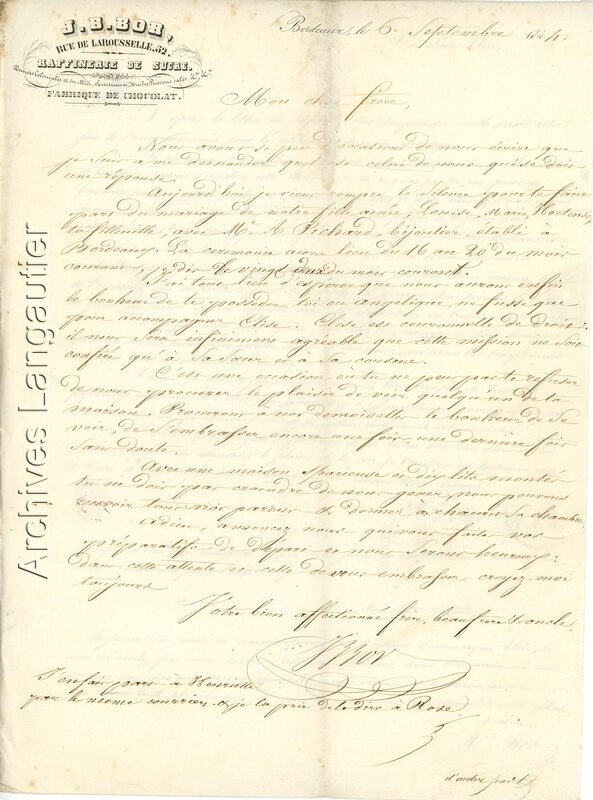 J. B. BOR,
RUE DE LAROUSSELLE, 52.
RAFFINERIE DE SUCRE.
Denrées Coloniales et du Midi, Poissons salés, &c. &c.
FABRIQUE DE CHOCOLAT.
Bordeaux, le 6 Septembre 1844.
Mon cher frère,
Nous avons si peu d'occasions de nous écrire que
je suis à me demander quel est celui de nous qui se doit
une réponse.
Aujourd'hui je viens rompre le silence pour te faire
part du mariage de notre fille ainée, Louise, Marie, Hortense,
ta filleuille, avec Mr A. Pichard, bijoutier, établi à
Bordeaux. La cérémonie aura lieu du 16 au 20 du mois
courant, je dis le vingt deux du mois courant.
J'ai tout lieu d'espérer que nous aurons enfin
le bonheur de te posséder, toi ou angélique, ne fusse que
pour accompagner Elise. Elise est couronnelle de droit
il nous sera infiniment agréable que cette mission ne soit
confiée qu'à sa sœur et à sa cousine.
C'est une occasion où tu ne peux pas te refuser
de nous procurer le plaisir de voir quelqu'un de ta
maison. Procurons à nos demoiselles le bonheur de se
voir, de s'embrasser encore une fois, une dernière fois
sans doute.
Avec une maison spacieuse et dix lits montés
tu ne dois pas craindre de nous gêner, nous pouvons
recevoir tous nos parens & donner à chacun sa chambre.
adieu, annoncez nous que vous faite vos
préparatifs de départ et nous serons heureux
dans cette attente et celle de vous embrasser, croyez moi
toujours
Votre bien affectionné frère, beau frère & oncle,
Bor
J'en fais part à Henriette
par le même courrier & je la prie de le dire à Rose
d'autre part
Archives Langautier